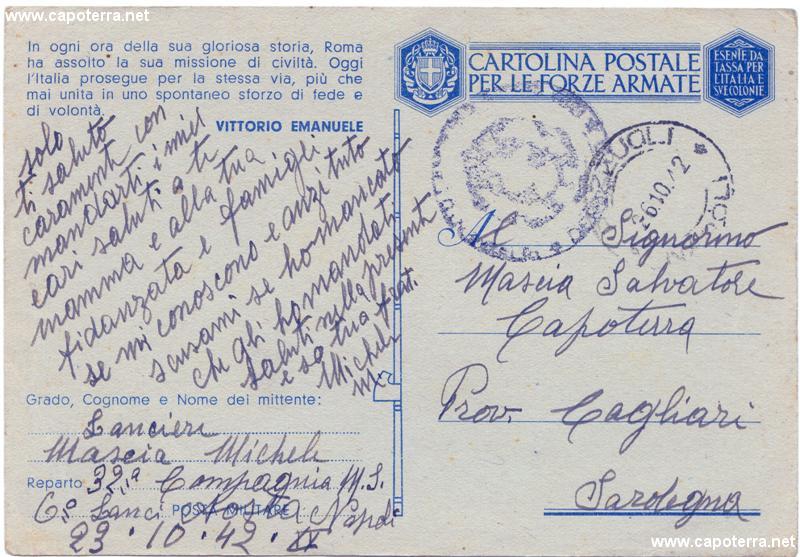 www.capoterra.net
www.capoterra.net
In ogni ora della sua gloriosa storia, Roma
ha assolto la sua missione di civiltà. Oggi
l'Italia prosegue per la stessa via, più che
mai unita in uno spontaneo sforzo di fede e
di volontà.
VITTORIO EMANUELE
CARTOLINA POSTALE
PER LE FORZE ARMATE
ESENTE DA
TASSA PER
L'ITALIA E
SVE COLONIE
26.10.42
solo
ti saluto
caramenti con
mandarti i miei
cari saluti a te
mamma e alla tua
fidanzata e famigli
se mi conoscono e anzi tuto
scusami se ho mancato
che gli ho mandati
saluti nella presenti
e so tuo frat.
Michele
Al Signorino
Mascia Salvatore
Capoterra
Prov. Cagliari
Sardegna
Grado, Cognome e Nome del mittente:
Lancieri
Mascia Michele
Reparto 32.a Compagnia M.S.
POSTA MILITARE
6.o Lanci Aosta Napoli
23.10.42.
www.capoterra.net
www.capoterra.net